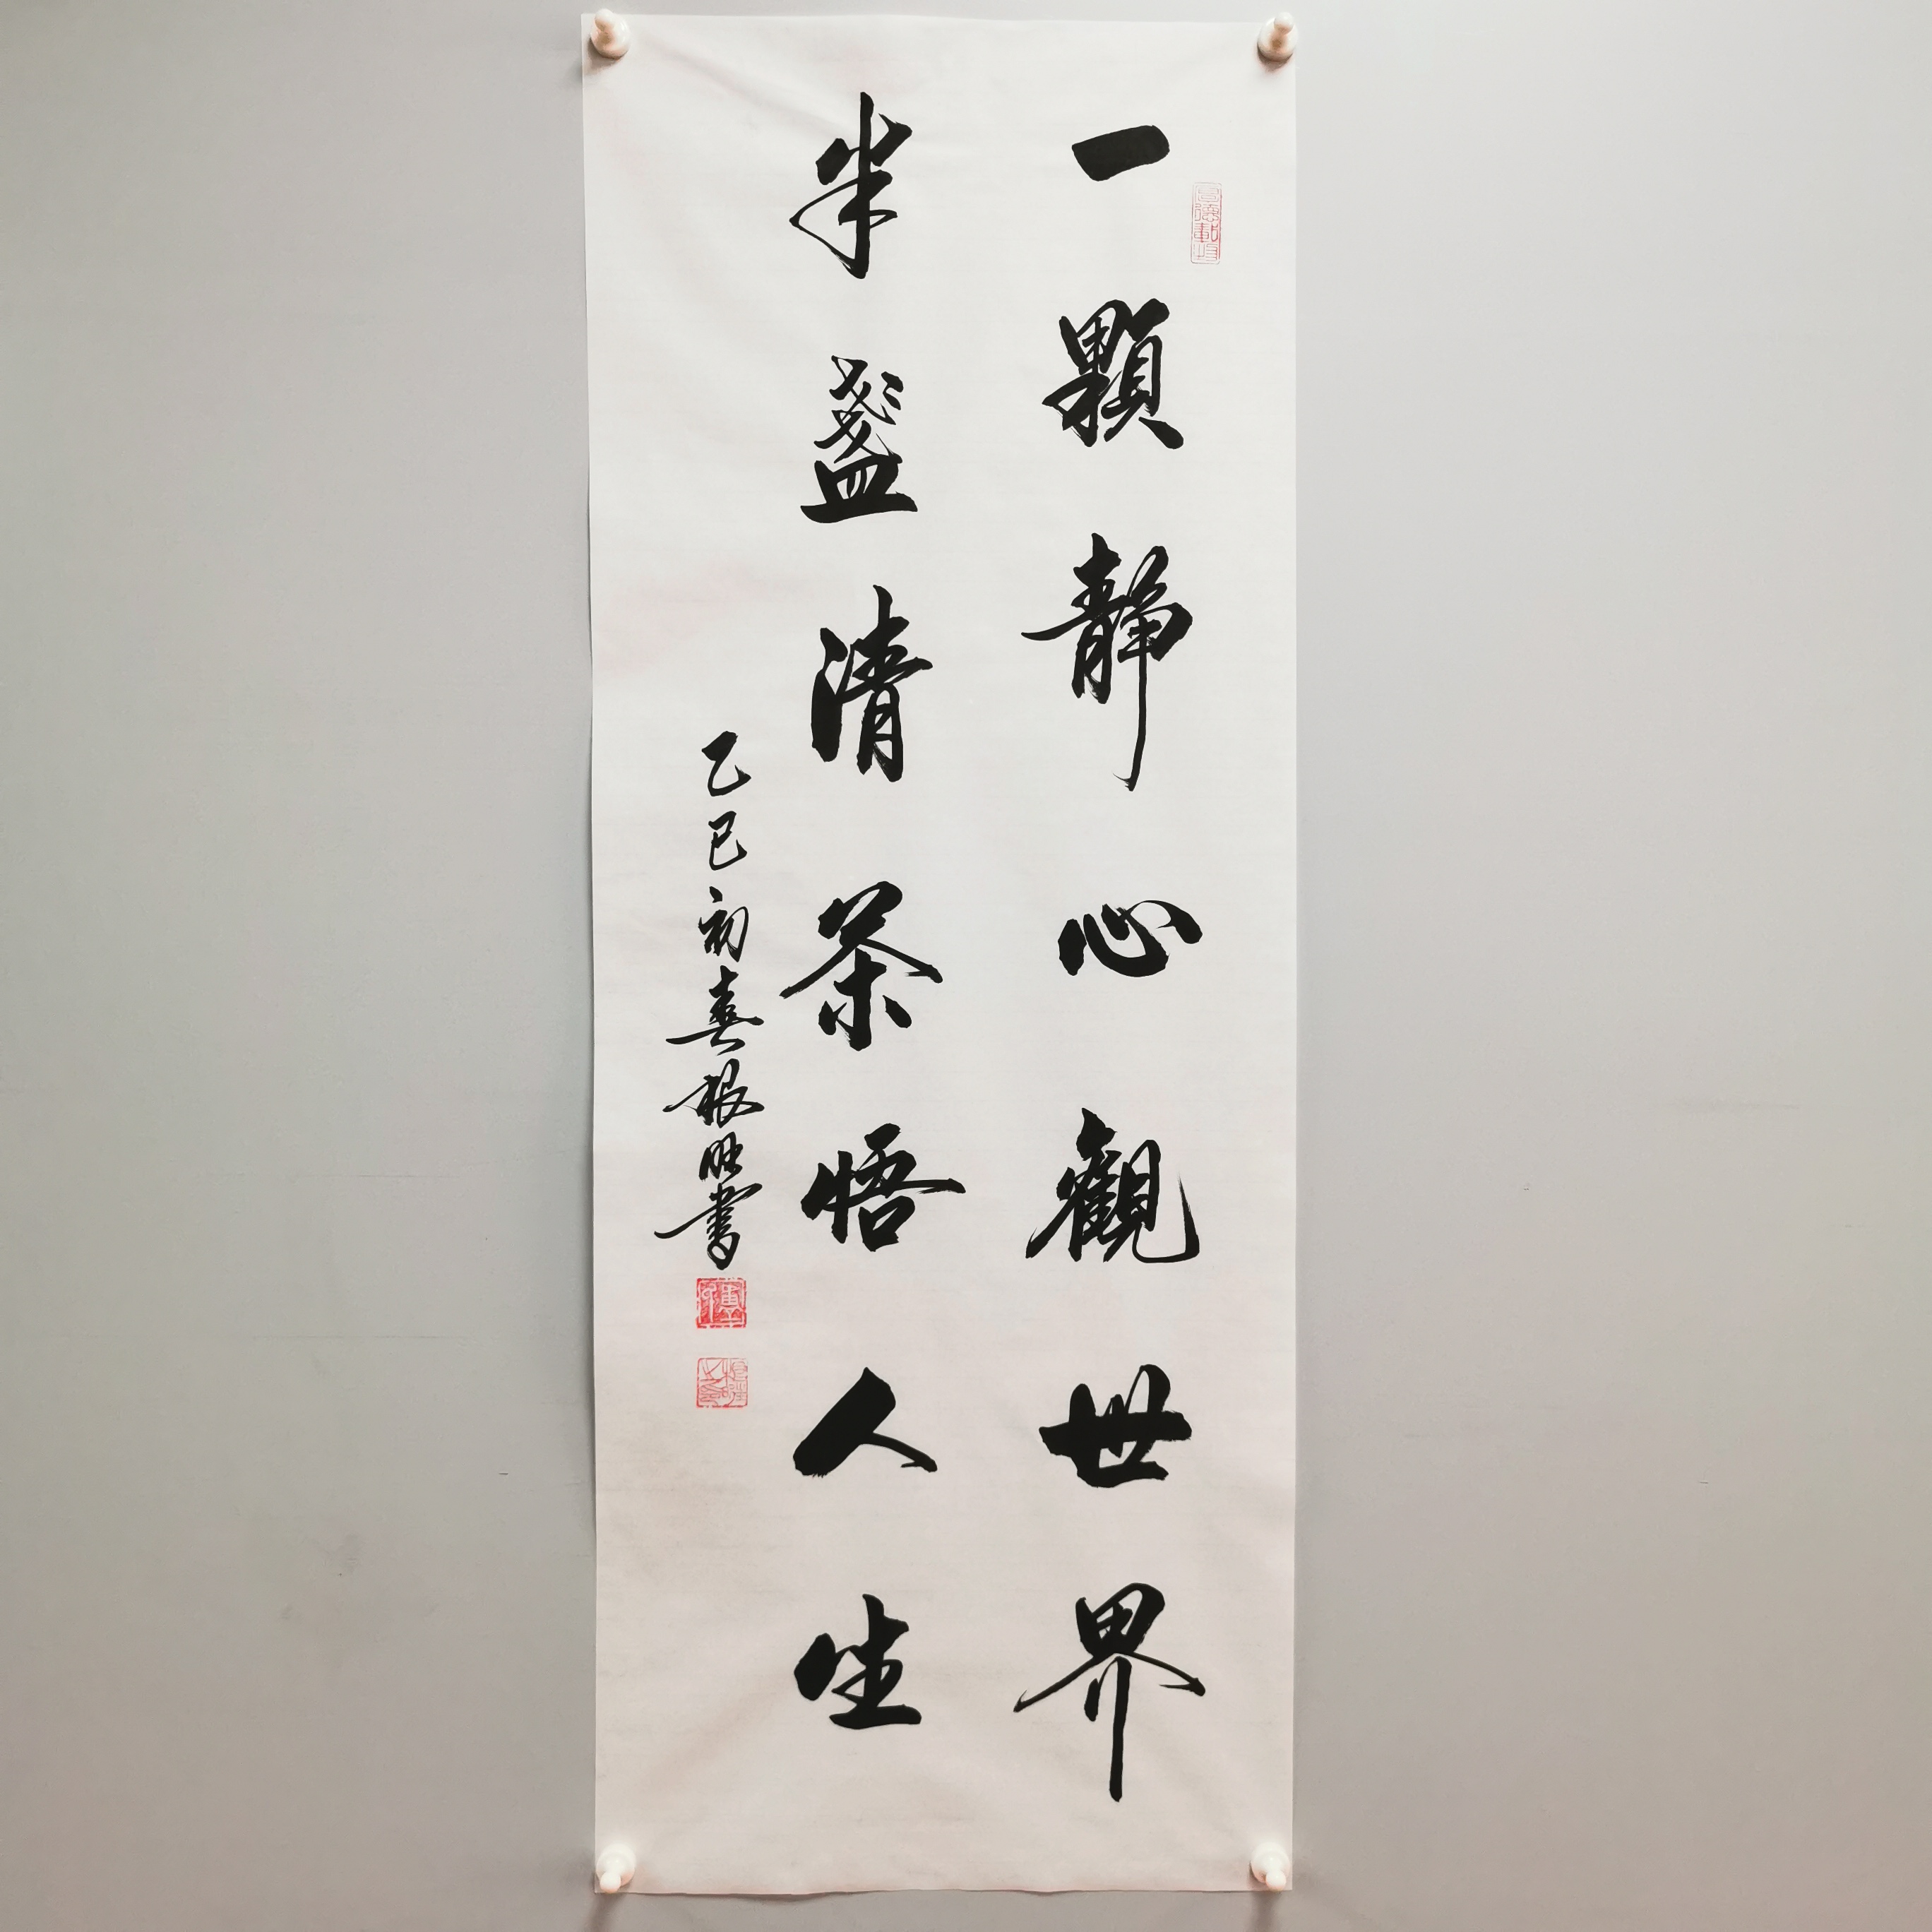 一顆靜心觀世界
半盞清茶悟人生
乙巳初春根旺書